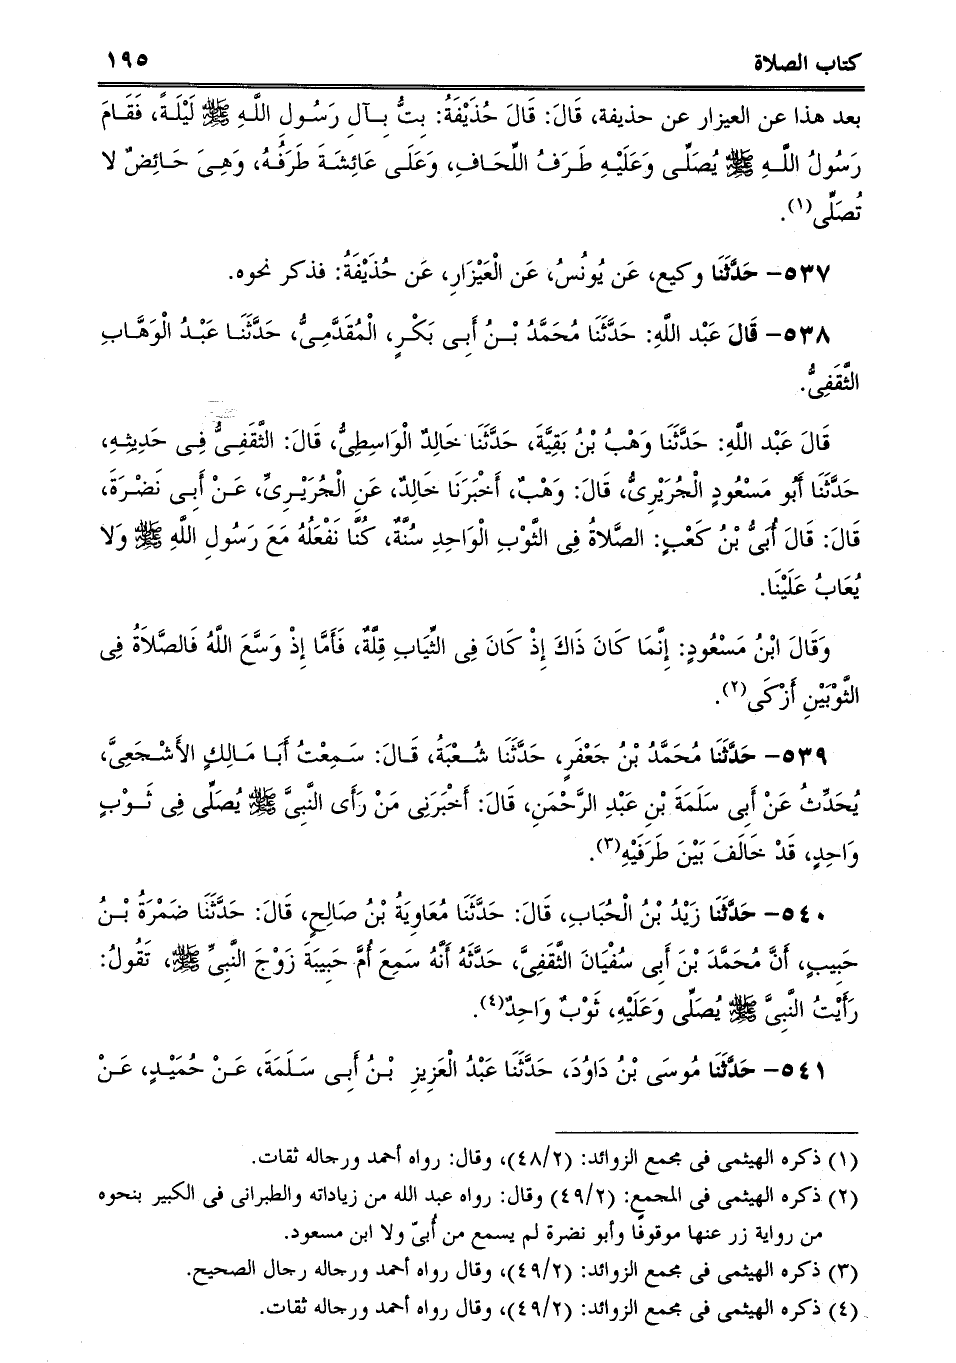 كتاب الصلاة ١٩٥
بعد هذا عن العيزار عن حذيفة، قَالَ: قَالَ حُذَيْفَةُ: بِتُّ بِآلِ رَسُولِ اللَّهِ ﷺ لَيْلَةً، فَقَامَ
رَسُولُ اللَّهِ ﷺ يُصَلِّى وَعَلَيْهِ طَرَفُ اللِّحَافِ، وَعَلَى عَائِشَةَ طَرَفُهُ، وَهِىَ حَائِضٌ لا
تُصَلِّى(١).
٥٣٧- حَدَّثَنَا وكيع، عَن يُونُسُ، عَن الْعَيْزَارِ، عَن حُذَيْفَةُ: فذكر نحوه.
٥٣٨- قَالَ عَبْد اللَّهِ: حَدَّثَنَا مُحَمَّدُ بْنُ أَبِى بَكْرٍ، الْمُقَدَّمِىُّ، حَدَّثَنَا عَبْدُ الْوَهَّابِ
الثَّقَفِىُّ.
قَالَ عَبْد اللَّهِ: حَدَّثَنَا وَهْبُ بْنُ بَقِيَّةَ، حَدَّثَنَا خَالِدٌ الْوَاسِطِىُّ، قَالَ: الثَّقَفِىُّ فِى حَدِيثِهِ،
حَدَّثَنَا أَبُو مَسْعُودٍ الْجُرَيْرِىُّ، قَالَ: وَهْبٌ، أَخْبَرَنَا خَالِدٌ، عَنِ الْجُرَيْرِىِّ، عَنْ أَبِى نَضْرَةَ،
قَالَ: قَالَ أُبَىُّ بْنُ كَعْبٍ: الصَّلاةُ فِى الثَّوْبِ الْوَاحِدِ سُنَّةٌ، كُنَّا نَفْعَلُهُ مَعَ رَسُولِ اللَّهِ ﷺ وَلا
يُعَابُ عَلَيْنَا.
وَقَالَ ابْنُ مَسْعُودٍ: إِنَّمَا كَانَ ذَاكَ إِذْ كَانَ فِى الثِّيَابِ قِلَّةٌ، فَأَمَّا إِذْ وَسَّعَ اللَّهُ فَالصَّلاَةُ فِى
الثَّوْبَيْنِ أَزْكَى(٢).
٥٣٩- حَدَّثَنَا مُحَمَّدُ بْنُ جَعْفَرٍ، حَدَّثَنَا شُعْبَةُ، قَالَ: سَمِعْتُ أَبَا مَالِكٍ الأَشْجَعِىَّ،
يُحَدِّثُ عَنْ أَبِى سَلَمَةَ بْنِ عَبْدِ الرَّحْمَنِ، قَالَ: أَخْبَرَنِى مَنْ رَأَى النَّبِىَّ ﷺ يُصَلِّى فِى ثَوْبٍ
وَاحِدٍ، قَدْ خَالَفَ بَيْنَ طَرَفَيْهِ(٣).
٥٤٠- حَدَّثَنَا زَيْدُ بْنُ الْحُبَابِ، قَالَ: حَدَّثَنَا مُعَاوِيَةُ بْنُ صَالِحٍ، قَالَ: حَدَّثَنَا ضَمْرَةُ بْنُ
حَبِيبٍ، أَنَّ مُحَمَّدَ بْنَ أَبِى سُفْيَانَ الثَّقَفِىَّ، حَدَّثَهُ أَنَّهُ سَمِعَ أُمَّ حَبِيبَةَ زَوْجَ النَّبِىِّ ﷺ، تَقُولُ:
رَأَيْتُ النَّبِىَّ ﷺ يُصَلِّى وَعَلَيْهِ، ثَوْبٌ وَاحِدٌ(٤).
٥٤١- حَدَّثَنَا مُوسَى بْنُ دَاوُدَ، حَدَّثَنَا عَبْدُ الْعَزِيزِ بْنُ أَبِى سَلَمَةَ، عَنْ حُمَيْدٍ، عَنْ
(١) ذكره الهيثمى فى مجمع الزوائد: (٤٨/٢)، وقال: رواه أحمد ورجاله ثقات.
(٢) ذكره الهيثمى فى المجمع: (٤٩/٢) وقال: رواه عبد الله من زياداته والطبرانى فى الكبير بنحوه
من رواية زر عنها موقوفًا وأبو نضرة لم يسمع من أُبىّ ولا ابن مسعود.
(٣) ذكره الهيثمى فى مجمع الزوائد: (٤٩/٢)، وقال رواه أحمد ورجاله رجال الصحيح.
(٤) ذكره الهيثمى فى مجمع الزوائد: (٤٩/٢)، وقال رواه أحمد ورجاله ثقات.